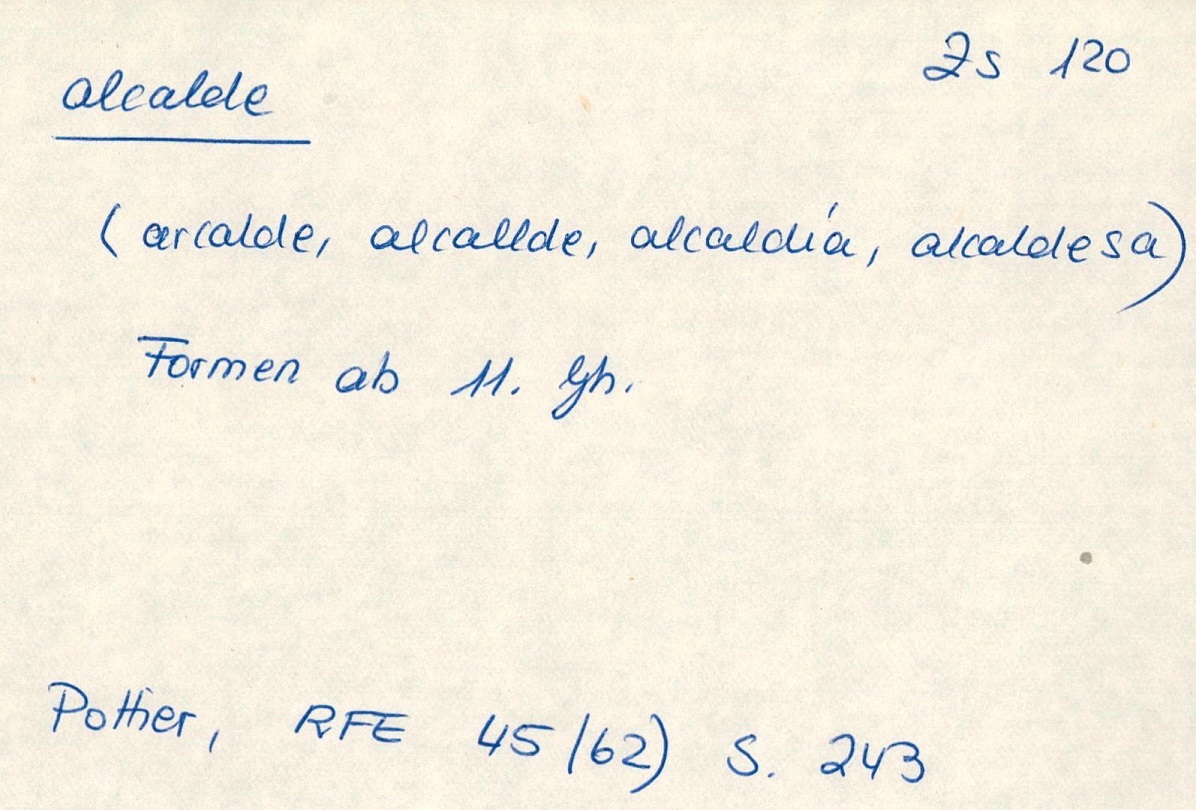 Zs 120
alcalde
(arcalde, alcallde, alcaldía, alcaldesa)
Formen ab 11. Jh.
Pottier, RFE 45 (62) S. 243